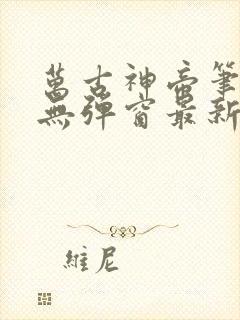 萬古神帝筆
無彈窗最新
維尼